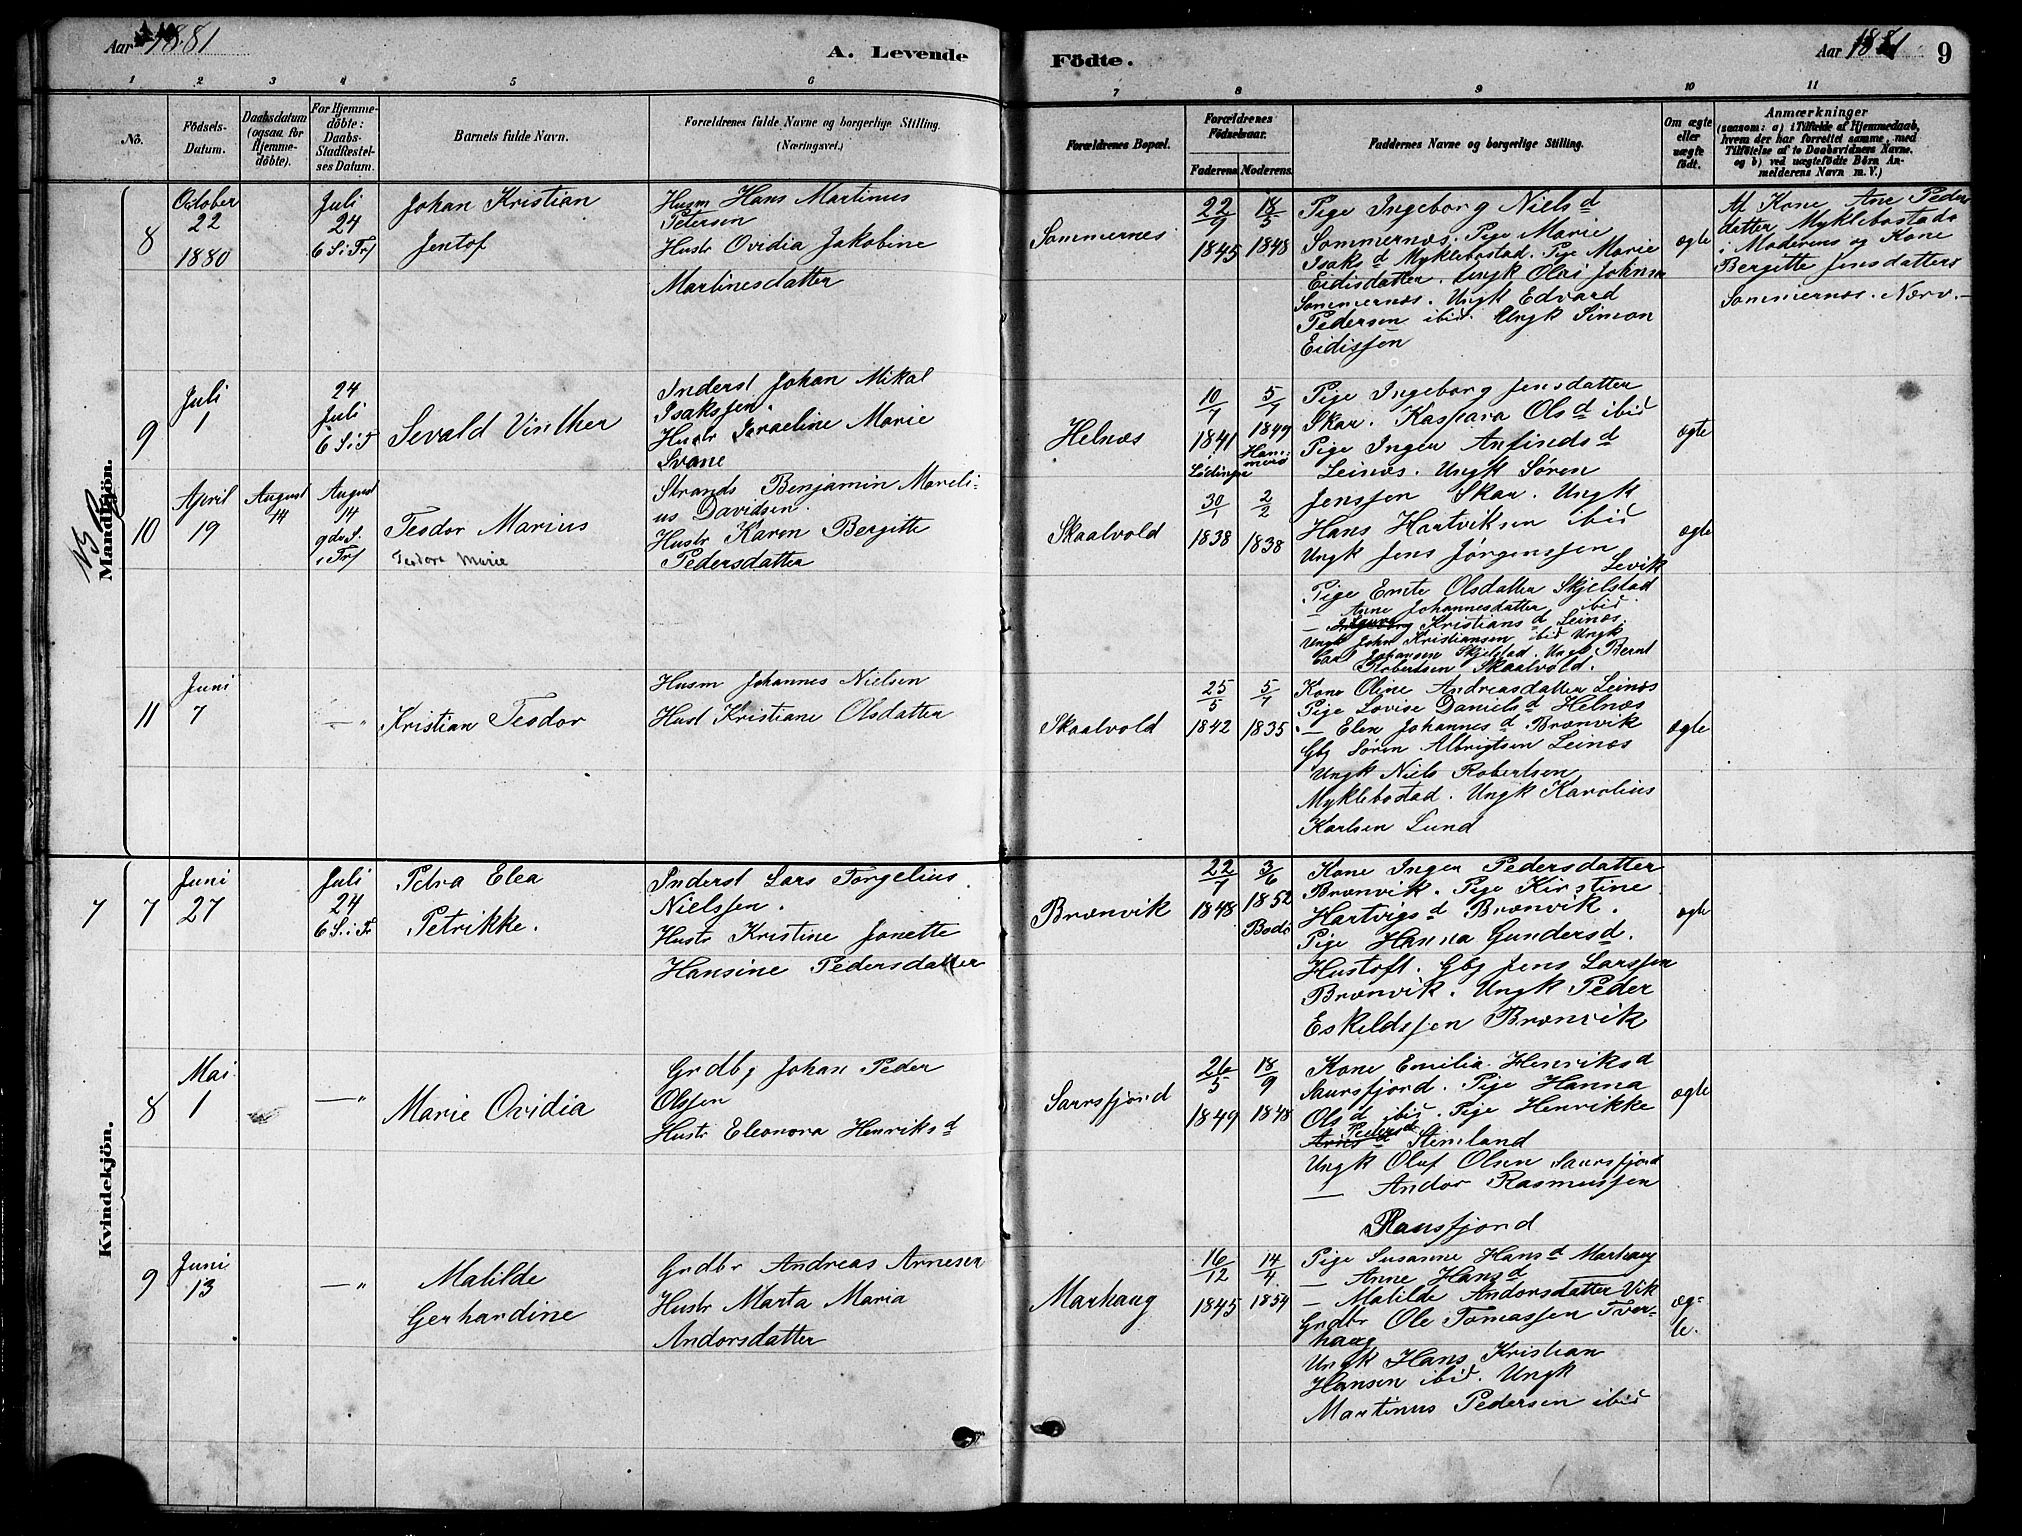 Aar 1881
A. Levende
Födte.
Aar 1881
9
1 2 3 4 5 6 7 8 9 10 11
No.
Födsels-
Datum.
Daabsdatum
(ogsaa for
Hjemme-
döbte).
For Hjemme-
döbte:
Daabs-
Stadfæstel-
ses Datum.
Barnets fulde Navn.
Forældrenes fulde Navne og borgerlige Stilling.
(Næringsvei.)
Forældrenes Bopæl.
Forældrenes
Födselsaar.
Faderens. Moderens.
Faddernes Navne og borgerlige Stilling.
Om ægte
eller
uægte
födt.
Anmærkninger
(saasom: a) i Tilfælde af Hjemmedaab,
hvem der har forrettet samme, med
Tilföielse af to Daabsvidners Navne,
og b) ved uægtefödte Börn An-
melderens Navn m. V.)
Mandkjön.
8
October
22
1880
Juli
24
6 S. i Tr
Johan Kristian
Jentof
Husm Hans Martinus
Petersen
Hustr Ovidia Jakobine
Martinesdatter
Sommernes
22/9
1845
18/5
1848
Pige Ingeborg Niels d
Sommernæs. Pige Marie
Isaks d Myklebostad. Pige Marie
Eidisdatter. Ungk Olai Johnsen
Sommernæs. Ungk Edvard
Pedersen ibid. Ungk Simon
Eidissen
ægte
Af Kone Ane Peders
datter Myklebostads
i Moderens og Kone
Bergitte Jensdatters
Sommernæs. Nærv.
9
Juli
1
24
Juli
6 S. i T
Sevald Vinther
Inderst Johan Mikal
Isakssen.
Hustr Israeline Marie
Svane
Helnæs
10/7
1841
Lødingen
5/7
1849
Ham-
merø
Pige Ingeborg Jensdatter
Skar. Kaspara Ols d ibid
Pige Inger Anfinds d
Leinæs. Ungk Søren
Jenssen Skar. Ungk
Hans Hartviksen ibid
Ungk Jens Jørgenssen
Levik
ægte
10
April
19
August
14
August
14
9de S.
i Tr
Teodor Marius
Teodora Marie
Strands Benjamin Mareli-
us Davidsen.
Hustr Karen Bergitte
Pedersdatter
Skaalvold
30/1
1838
2/2
1838
Pige Emte Olsdatter Skjelstad
— Anne Johannesdatter ibid
— Kristians d Leinæs.
Ungk John Kristiansen ibid Ungk
Carl Johansen Skjelstad. Ungk Bernt
Robertsen Skaalvold.
ægte
11
Juni
7
— "
Kristian Teodor
Husm Johannes Nielsen
Hust Kristiane Olsdatter
Skaalvold
25/5
1842
5/7
1835
Kone Oline Andreasdatter Leinæs
Pige Lovise Daniels d Helnæs
— Elen Johannes d Brænvik
Gbg Søren Albrigtsen Leinæs
Ungk Niels Robertsen
Myklebostad. Ungk Karolius
Karlsen Lund
ægte
Kvindekjön.
7
7
Juni
27
Juli
24
6 S. i Tr
Petra Elea
Petrikke.
Inderst Lars Torgelius
Nielssen.
Hustr Kristine Jonette
Hansine Pedersdatter
Brænvik
22/7
1848
3/6
1852
Bodø
Kone Inger Pedersdatter
Brænvik. Pige Kirstine
Hartvigs d Brænvik.
Pige Hanna Gunders d.
Hustoft. Gbg Jens Larssen
Brænvik. Ungk Peder
Eskildssen Brænvik
ægte
8
Mai
1
— "
Marie Ovidia
Grdbg Johan Peder
Olssen
Hustr Eleonora Henriks d
Saursfjord
26/5
1849
18/9
1848
Kone Emilia Henriks d
Saursfjord. Pige Hanna
Ols d ibid. Pige Henrikke
Peders d Stensland
Ungk Oluf Olsen Saursfjord
— Andor Rasmussen
Ransfjord
ægte
9
Juni
13
— "
Matilde
Gerhardine
Grdbr Andreas Arnesen
Hustr Marta Maria
Andorsdatter
Marhaug
16/12
1845
14/4
1854
Pige Susanne Hans d Marhaug
— Anne Hans d
— Matilde Andorsdatter Vik
Grdbr Ole Tomassen Tver-
haug
Ungk Hans Kristian
Hansen ibid. Ungk
Martinus Pedersen ibid
æg-
te.